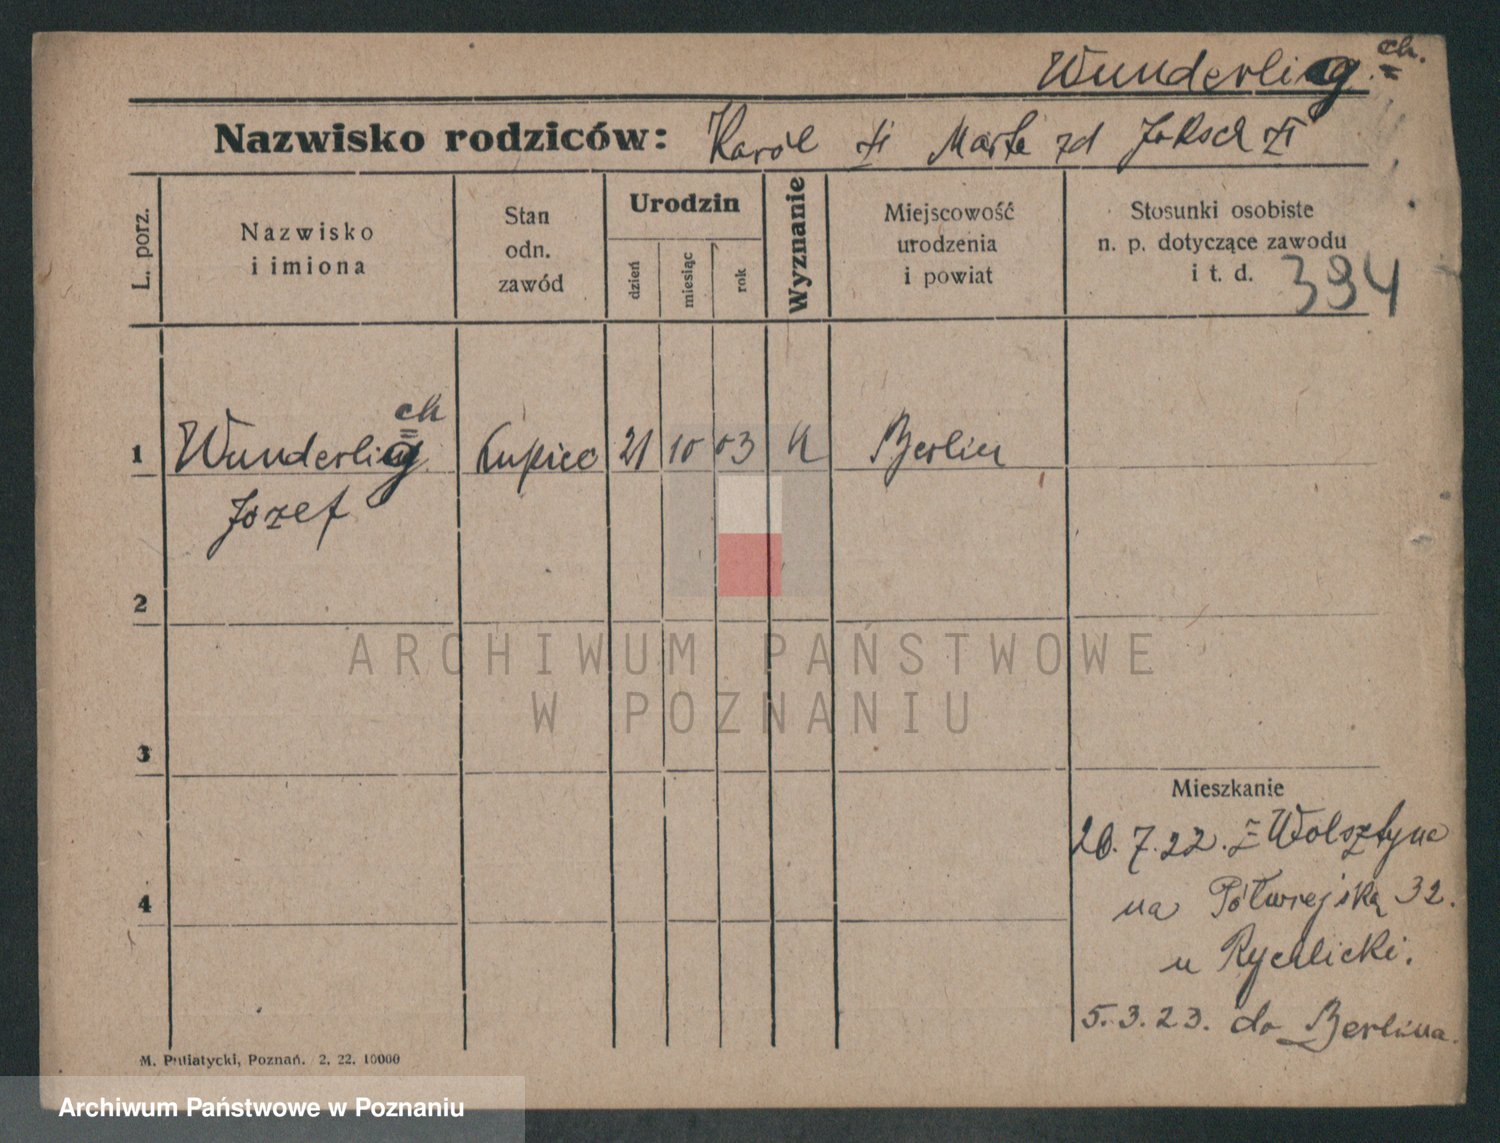 Wunderlig ch.
Nazwisko rodziców: Karól żi Marta zd Joksch żi
L. porz.
Nazwisko
i imiona
Stan
odn.
zawód
Urodzin
dzień
miesiąc
rok
Wyznanie
Miejscowość
urodzenia
i powiat
Stosunki osobiste
n. p. dotyczące zawodu
i t. d.
394
1 Wunderlig ch Kupiec 21 10 03 Berlin
Jozef
2
ARCHIWUM PAŃSTWOWE
W POZNANIU
3
Mieszkanie
26.7.22. z Wolsztyna
4
na Półwiejską 32.
u Rychlicki.
5.3.23. do Berlina.
M. Putiatycki, Poznań. 2. 22. 10000
Archiwum Państwowe w Poznaniu